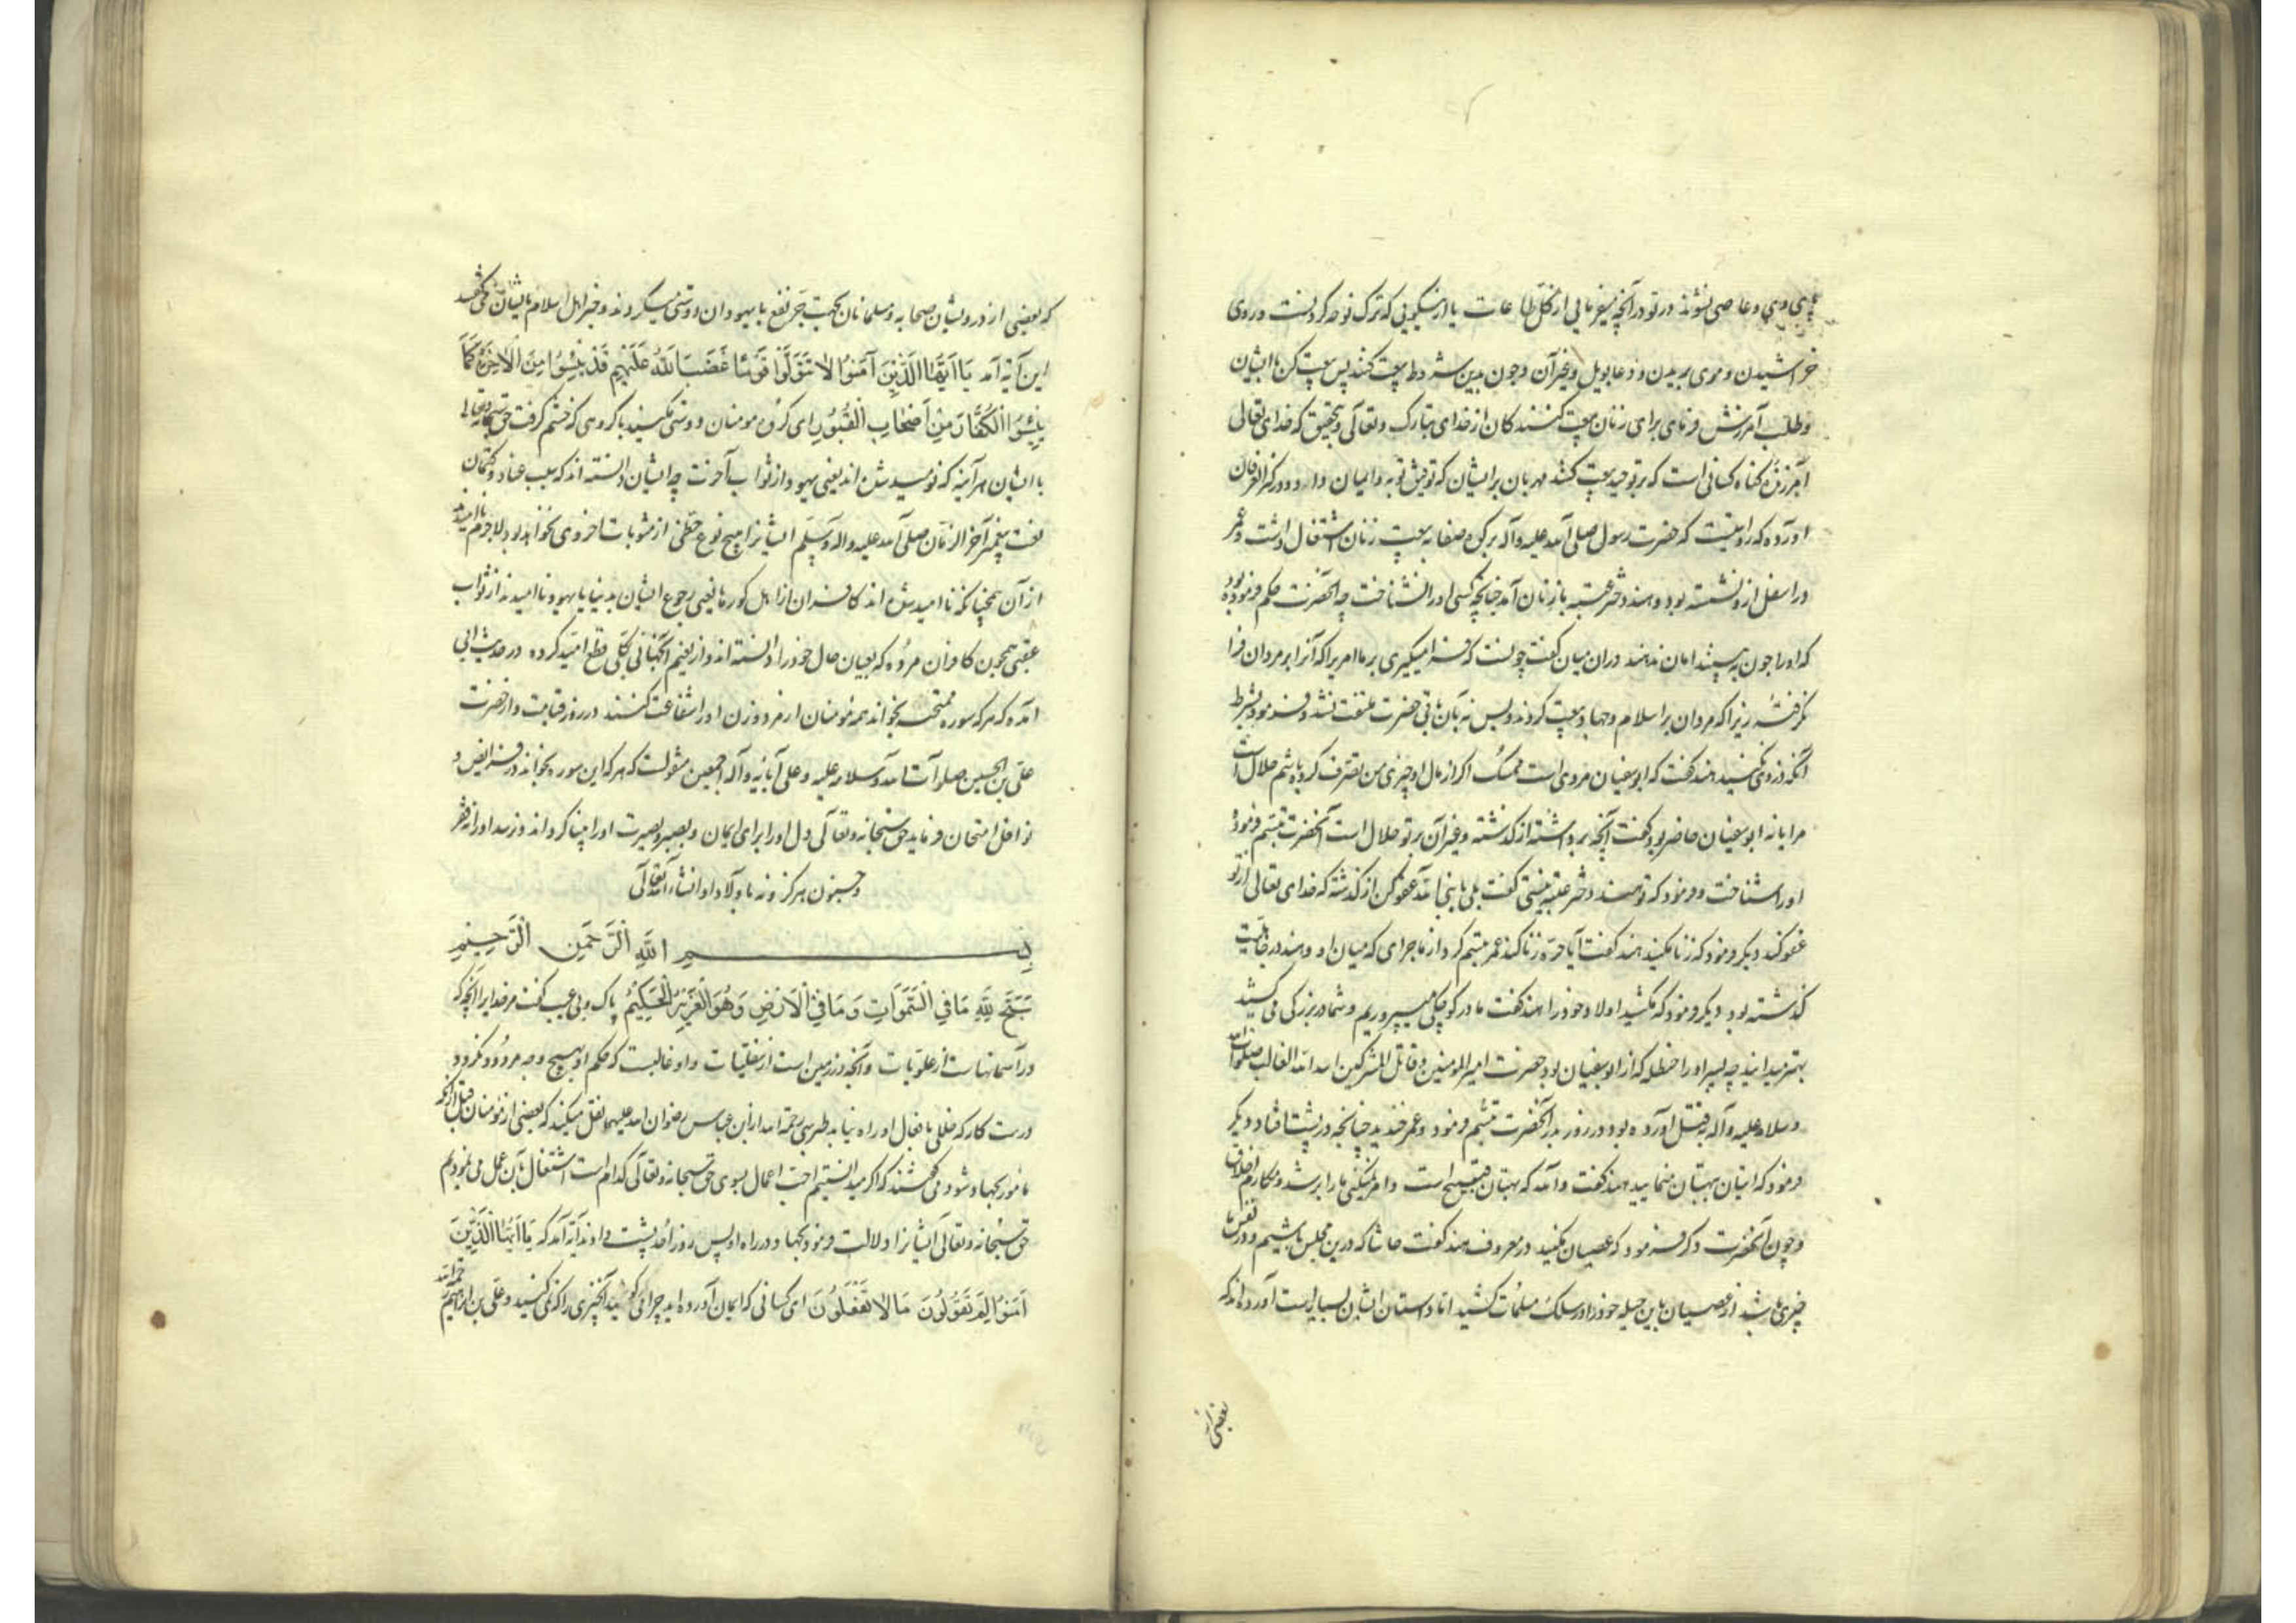 و عاصی نشوند در تو در آنچه میفرمایی از کل طاعات یا از نیکویی که ترک نوحه کردنست و روی
خراشیدن و موی بریدن و دعا بویل و غیر آن و چون بدین شرط بیعت کنند پس بیعت کن با ایشان
و طلب آمرزش فرمای برای زنان بیعت کنندکان از خدای تبارک و تعالی و بتحقیق که خدای تعالی
آمرزنده کناه کسانی است که بر توحید بیعت کنند مهربان بر ایشان که توفیق توبه و ایمان داد و در کنز العرفان
آورده که روایتست که حضرت رسول صلی الله علیه و آله بر کوه صفا به بیعت زنان اشتغال داشت و عمر
در اسفل از او نشسته بود و هند دختر عتبه با زنان آمد چنانچه کسی او را نشناخت چه آنحضرت حکم فرموده بود
که او را چون به بینند امان ندهند در آن میان کفت چونست که فرا میکیری بر ما امریرا که آنرا بر مردان فرا
نکرفتهٔ زیرا که مردان بر اسلام و جهاد بیعت کردند و بس حضرت ملتفت نشد و فرمود بشرط
آنکه دزدی نکنید هند کفت که ابوسفیان مردی است ممسک اکر از مال او چیزی من تصرف کرده باشم حلال است
مرا یا نه ابوسفیان حاضر بود کفت آنچه برداشتهٔ از کذشته و غیر آن بر تو حلال است آنحضرت تبسم فرمود
او را شناخت و فرمود که تو هند دختر عتبه نیستی کفت بلی یا نبی الله عفو کن از کذشته که خدای تعالی از تو
عفو کند دیکر فرمود که زنا نکنید هند کفت آیا حره زنا کند عمر تبسم کرد از ماجرای که میان او و هند در جاهلیت
کذشته بود دیکر فرمود که نکشید اولاد خود را هند کفت ما در کوچکی میپروریم و شما در بزرکی می کشید
بهتر میدانید چه پسر او را حنظله که از ابوسفیان بود حضرت امیر المومنین و قاتل المشرکین اسد الله الغالب صلوات الله
و سلامه علیه و آله بقتل آورده بود در روز بدر آنحضرت تبسم فرمود و عمر خندید چنانچه در پشت افتاد دیکر
فرمود که اتیان بهتان منمایید هند کفت و الله که بهتان قبیح است و امر نمیکنی ما را بر رشد و مکارم اخلاق
و چون آنحضرت ذکر فرمود که عصیان نکنید در معروف هند کفت حاشا که درین مجلس باشیم و در نفس ما
چیزی باشد از عصیان باین حیله خود را در سلک مسلمات کشید اما داستان ایشان بسیارست آورده اند که
بعضی از
که بعضی از درویشان صحابه و مسلمانان بجهت جر نفع با یهودان دوستی میکردند و خبر اهل اسلام بایشان می کفتند
این آیه آمد یَا اَیُّهَا الَّذِینَ آمَنُوا لَا تَتَوَلَّوْا قَوْمًا غَضِبَ اللّٰهُ عَلَیْهِمْ قَدْ یَئِسُوا مِنَ الْآخِرَةِ کَمَا
یَئِسَ الْکُفَّارُ مِنْ اَصْحَابِ الْقُبُورِ ای کروه مومنان دوستی مکنید با کروهی که خشم کرفت حق سبحانه و تعالی
با ایشان هر آینه که نومید شده اند یعنی یهود از ثواب آخرت چه ایشان دانسته اند که بسبب عناد و کتمان
نعت پیغمبر آخر الزمان صلی الله علیه و اله و سلم ایشانرا هیچ نوع حظی از مثوبات اخروی نخواهد بود لاجرم نا امیدند
از آن همچنانکه نا امید شده اند کافران از اهل کورها یعنی رجوع ایشان بدنیا یا یهود نا امیدند از ثواب
عقبی همچون کافران مرده که بعیان حال خود را دانسته اند و از نعیم آنجهانی بکلی قطع امید کرده در حدیث ابی
آمده که هر که سوره ممتحنه بخواند همه مومنان از مرد و زن او را شفاعت کنند در روز قیامت و از حضرت
علی بن الحسین صلوات الله و سلامه علیه و علی آبائه و آله اجمعین منقولست که هر که این سوره بخواند در فرایض و
نوافل امتحان فرماید حق سبحانه و تعالی دل او را برای ایمان و بصیرت او را بینا کرداند و نرسد او را فقر
و جنون هرکز و نه باولاد او انشاء الله تعالی
بِسْمِ اللّٰهِ الرَّحْمٰنِ الرَّحِیمِ
سَبَّحَ لِلّٰهِ مَا فِی السَّمٰوَاتِ وَ مَا فِی الْاَرْضِ وَ هُوَ الْعَزِیزُ الْحَکِیمُ پاک و بی عیب کفت مر خدایرا آنچه که
در آسمانهاست از علویات و آنچه در زمین است از سفلیات و او غالبست که حکم او بهیچ وجه مردود نکردد
درست کار که خللی بافعال او راه نیابد طبرسی رحمه الله از ابن عباس رضوان الله علیهما نقل میکند که بعضی از مومنان قبل از آنکه
مامور بجهاد شوند می کفتند که اکر میدانستیم احب اعمال بسوی حق سبحانه و تعالی کدام است اشتغال بآن عمل می نمودیم
حق سبحانه و تعالی ایشانرا دلالت فرمود بجهاد در راه او پس روز احد پشت دادند آیه آمد که یَا اَیُّهَا الَّذِینَ
آمَنُوا لِمَ تَقُولُونَ مَا لَا تَفْعَلُونَ ای کسانی که ایمان آورده اید چرا می کویید آنچیزی را که نمی کنید و علی بن ابراهیم رحمه الله